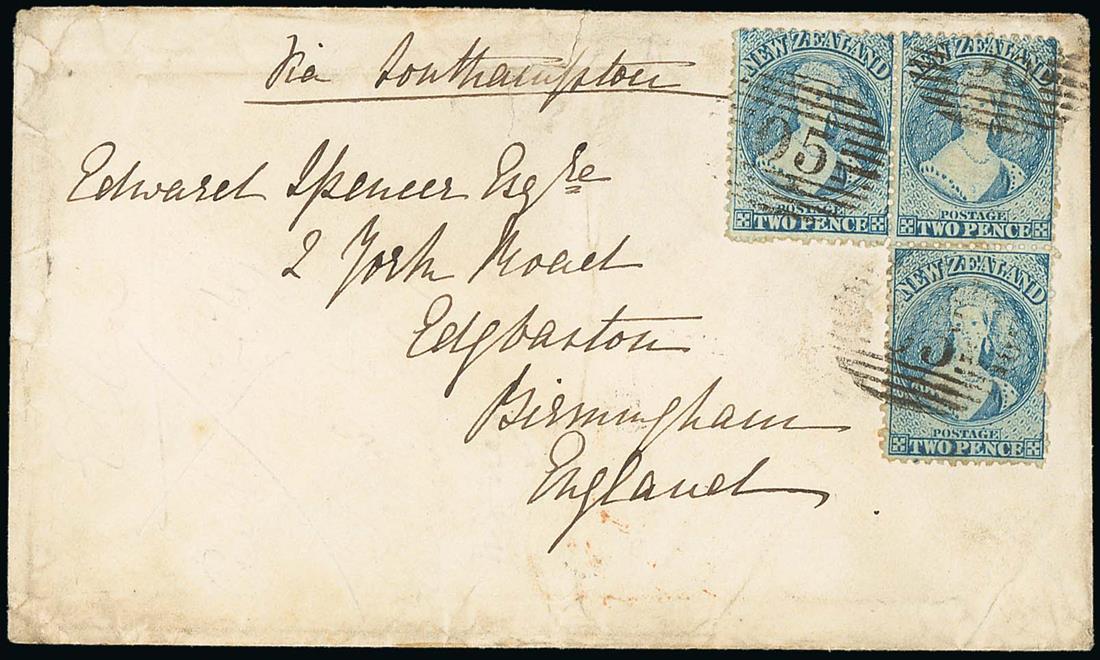 Via Southampton
Edward Spencer Esqre
2 York Road
Edgbaston
Birmingham
England
NEW ZEALAND
95
POSTAGE
TWO PENCE
NEW ZEALAND
POSTAGE
TWO PENCE
NEW ZEALAND
POSTAGE
TWO PENCE